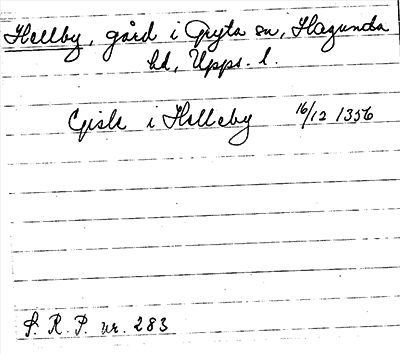 Hellby, gård i Gryta sn, Hagunda
hd, Upps. l.
Gisle i Helleby 16/12 1356
S. R. P. nr. 283